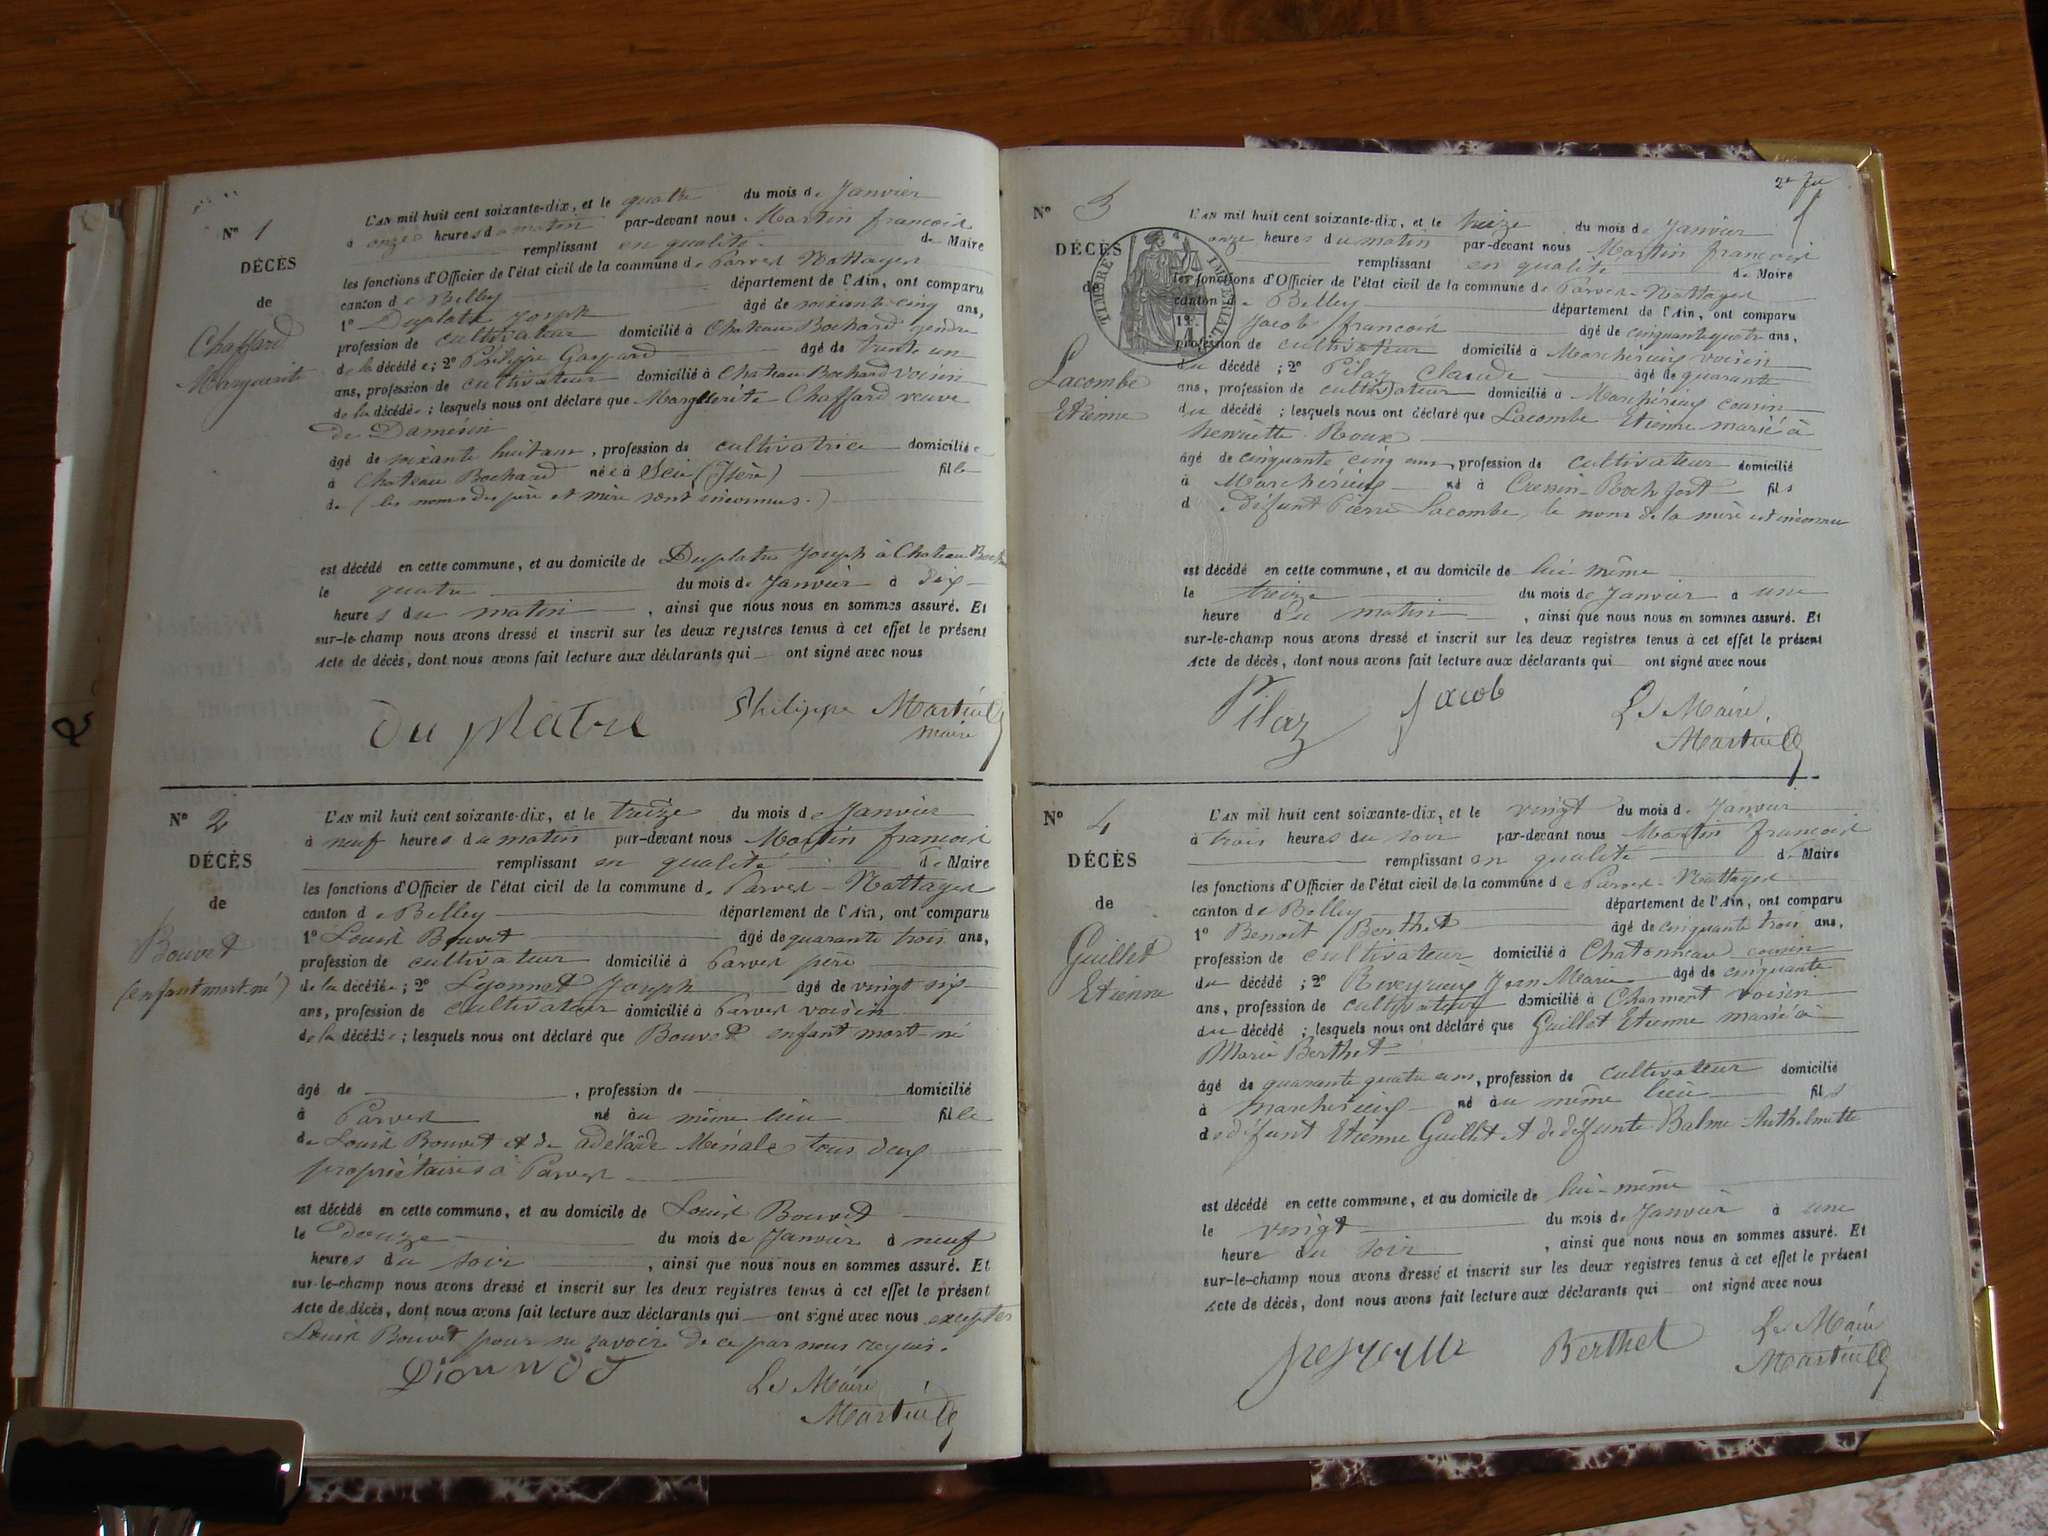 N° 1
DÉCÈS
de
Chaffard
Marguerite
L'AN mil huit cent soixante-dix, et le quatre du mois de Janvier
à onze heures du matin par-devant nous Martin françois
remplissant en qualité de Maire
les fonctions d'Officier de l'état civil de la commune de Parves Nattages
canton de Belley département de l'Ain, ont comparu
1° Duplatre Joseph âgé de soixante cinq ans,
profession de cultivateur domicilié à Chateau Bochard gendre
de la décédée; 2° Philippe Gaspard âgé de trente un
ans, profession de cultivateur domicilié à Chateau Bochard voisin
de la décédée; lesquels nous ont déclaré que Marguerite Chaffard veuve
de Damesin
âgé de soixante huit ans, profession de cultivatrice domiciliée
à Chateau Bochard née à (Isère) fille
de (les noms du père et mère sont inconnus.)
est décédé en cette commune, et au domicile de Duplatre Joseph à Chateau Boch
le quatre du mois de Janvier à dix
heures du matin, ainsi que nous nous en sommes assuré. Et
sur-le-champ nous avons dressé et inscrit sur les deux registres tenus à cet effet le présent
Acte de décès, dont nous avons fait lecture aux déclarants qui ont signé avec nous
Du platre Philippe Martin
maire
N° 2
DÉCÈS
de
Bouvet
(enfant mort-né)
L'AN mil huit cent soixante-dix, et le treize du mois de Janvier
à neuf heures du matin par-devant nous Martin françois
remplissant en qualité de Maire
les fonctions d'Officier de l'état civil de la commune de Parves-Nattages
canton de Belley département de l'Ain, ont comparu
1° Louis Bouvet âgé de quarante trois ans,
profession de cultivateur domicilié à Parves père
de la décédée; 2° Joseph âgé de vingt six
ans, profession de cultivateur domicilié à Parves voisin
de la décédée; lesquels nous ont déclaré que Bouvet enfant mort-né
âgé de , profession de domicilié
à Parves né au même lieu fille
de Louis Bouvet et de adélaïde tous deux
propriétaires à Parves
est décédé en cette commune, et au domicile de Louis Bouvet
le douze du mois de Janvier à neuf
heures du soir, ainsi que nous nous en sommes assuré. Et
sur-le-champ nous avons dressé et inscrit sur les deux registres tenus à cet effet le présent
Acte de décès, dont nous avons fait lecture aux déclarants qui ont signé avec nous excepter
Louis Bouvet pour ne savoir de ce par nous requis.
Le Maire
Martin
2e fu
N° 3
DÉCÈS
de
Lacombe
Etienne
TIMBRE IMPERIAL
L'AN mil huit cent soixante-dix, et le treize du mois de Janvier
onze heures du matin par-devant nous Martin françois
remplissant en qualité de Maire
les fonctions d'Officier de l'état civil de la commune de Parves-Nattages
canton de Belley département de l'Ain, ont comparu
Jacob françois âgé de cinquante quatre ans,
profession de cultivateur domicilié à Marchérieux voisin
du décédé; 2° Pilaz Claude âgé de quarante
ans, profession de cultivateur domicilié à Marchérieux cousin
du décédé; lesquels nous ont déclaré que Lacombe Etienne marié à
henriette Roux
âgé de cinquante cinq ans, profession de cultivateur domicilié
à Marchérieux né à Cressin-Rochefort fils
de défunt Pierre Lacombe, le nom de la mère est inconnu
est décédé en cette commune, et au domicile de lui même
le treize du mois de Janvier à une
heure du matin, ainsi que nous nous en sommes assuré. Et
sur-le-champ nous avons dressé et inscrit sur les deux registres tenus à cet effet le présent
Acte de décès, dont nous avons fait lecture aux déclarants qui ont signé avec nous
Pilaz Jacob Le Maire,
Martin
N° 4
DÉCÈS
de
Guillet
Etienne
L'AN mil huit cent soixante-dix, et le vingt du mois de Janvier
à trois heures du soir par-devant nous Martin françois
remplissant en qualité de Maire
les fonctions d'Officier de l'état civil de la commune de Parves-Nattages
canton de Belley département de l'Ain, ont comparu
1° Benoit Berthet âgé de cinquante trois ans,
profession de cultivateur domicilié à Chatonneau cousin
du décédé; 2° Jean Marie âgé de cinquante
ans, profession de cultivateur domicilié à Charmont voisin
du décédé; lesquels nous ont déclaré que Guillet Etienne marié à
Marie Berthet
âgé de quarante quatre ans, profession de cultivateur domicilié
à Marchérieux né au même lieu fils
de défunt Etienne Guillet et de défunte Balme Anthelmette
est décédé en cette commune, et au domicile de lui-même
le vingt du mois de Janvier à une
heure du soir, ainsi que nous nous en sommes assuré. Et
sur-le-champ nous avons dressé et inscrit sur les deux registres tenus à cet effet le présent
Acte de décès, dont nous avons fait lecture aux déclarants qui ont signé avec nous
Berthet Le Maire
Martin